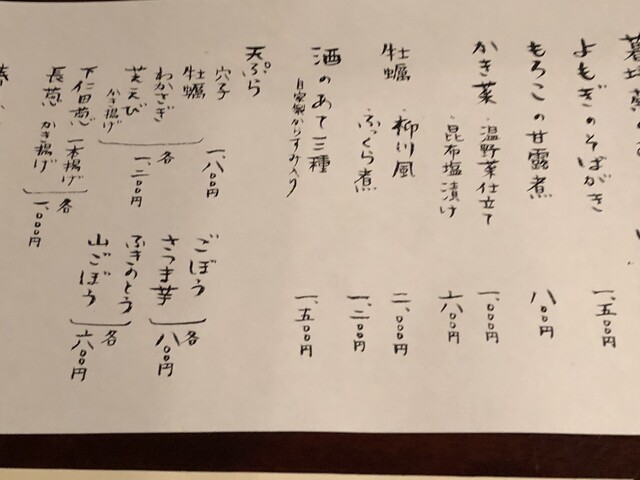 よもぎのそばがき 一、五〇〇円
もろこの甘露煮 八〇〇円
かき菜 ・温野菜仕立て 一、〇〇〇円
・昆布塩漬け 六〇〇円
牡蠣 ・柳川風 二、〇〇〇円
・ふっくら煮 一、二〇〇円
酒のあて三種 一、五〇〇円
自家製からすみ入り
天ぷら
穴子 一、八〇〇円
牡蠣
わかさぎ
芝えび かき揚げ
各 一、二〇〇円
下仁田葱 一本揚げ
長葱 かき揚げ
各 一、〇〇〇円
ごぼう
さつま芋
各 八〇〇円
ふきのとう
山ごぼう
各 六〇〇円